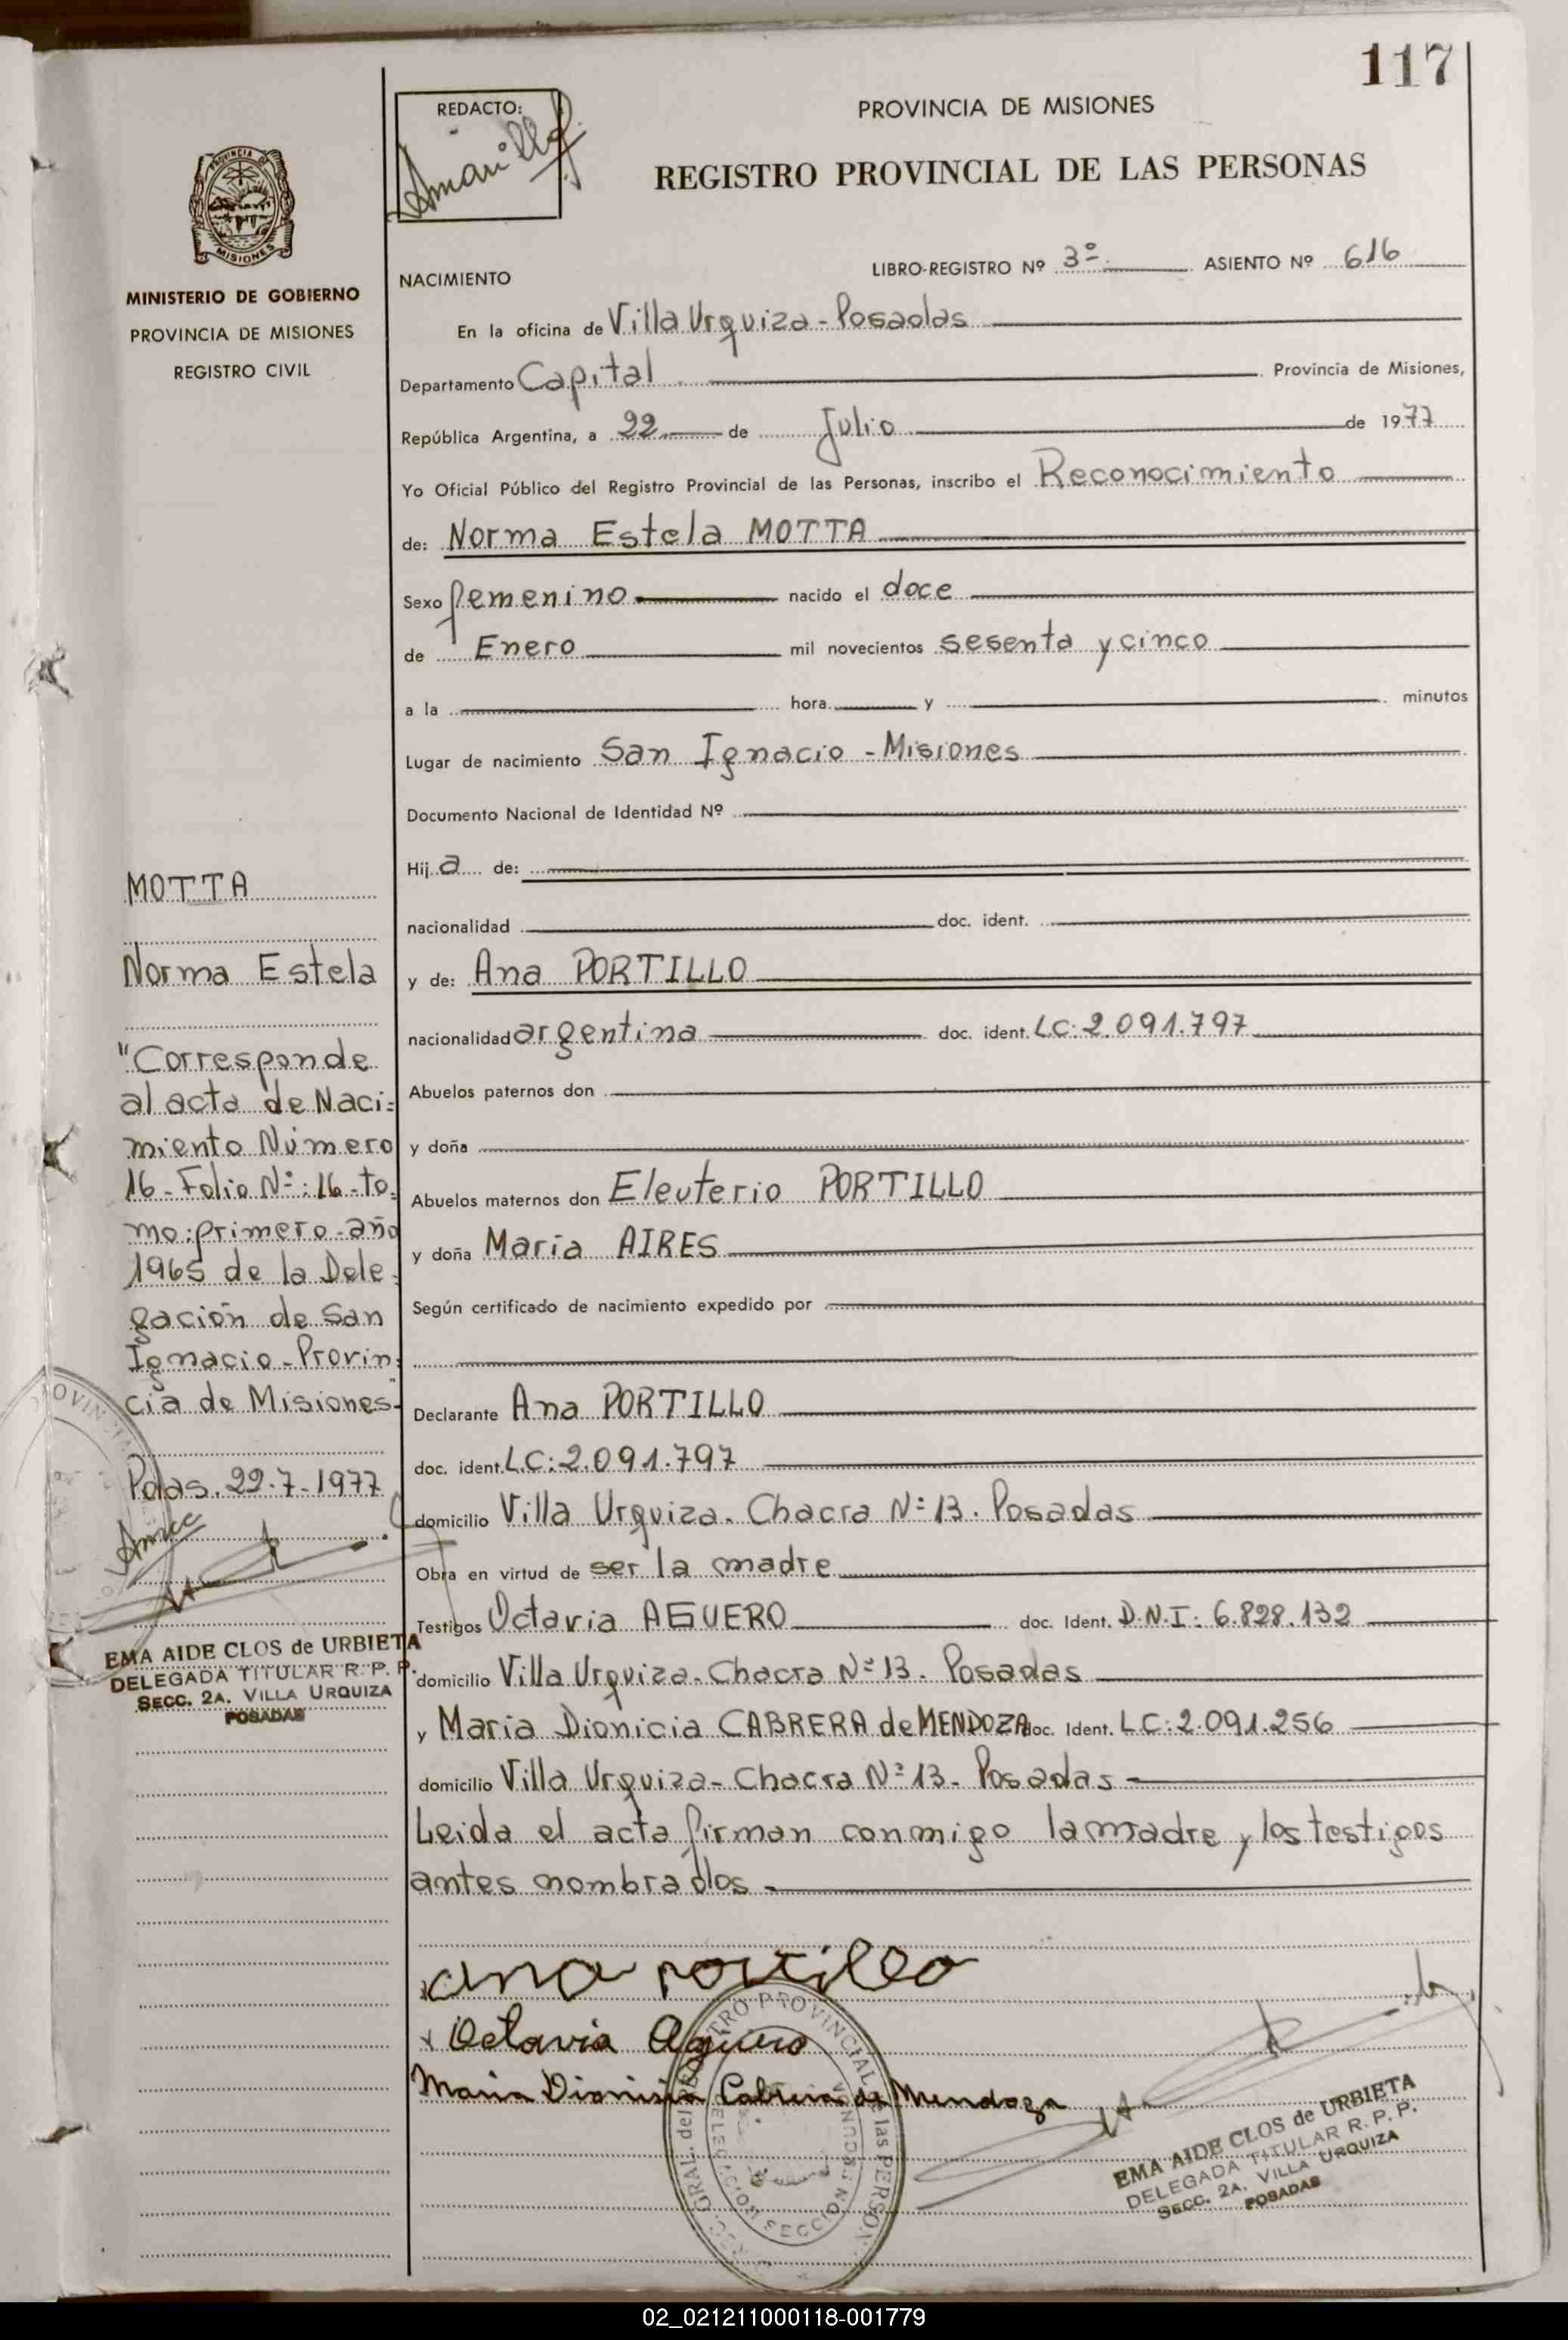 117
REDACTO:
PROVINCIA DE MISIONES
REGISTRO PROVINCIAL DE LAS PERSONAS
PROVINCIA DE
MISIONES
MINISTERIO DE GOBIERNO
PROVINCIA DE MISIONES
REGISTRO CIVIL
NACIMIENTO
LIBRO-REGISTRO Nº 3º ASIENTO Nº 616
En la oficina de Villa Urquiza - Posadas
Departamento Capital Provincia de Misiones,
República Argentina, a 22 de Julio de 1977
Yo Oficial Público del Registro Provincial de las Personas, inscribo el Reconocimiento
de: Norma Estela MOTTA
Sexo femenino nacido el doce
de Enero mil novecientos sesenta y cinco
a la hora y minutos
Lugar de nacimiento San Ignacio - Misiones
Documento Nacional de Identidad Nº
Hij a de:
nacionalidad doc. ident.
y de: Ana PORTILLO
nacionalidad argentina doc. ident. LC: 2.091.797
Abuelos paternos don
y doña
Abuelos maternos don Eleuterio PORTILLO
y doña Maria AIRES
Según certificado de nacimiento expedido por
Declarante Ana PORTILLO
doc. ident. LC: 2.091.797
domicilio Villa Urquiza. Chacra Nº 13. Posadas
Obra en virtud de ser la madre
Testigos Octavia AGUERO doc. Ident. D.N.I: 6.828.132
domicilio Villa Urquiza. Chacra Nº 13. Posadas
y Maria Dionicia CABRERA de MENDOZA doc. Ident. LC: 2.091.256
domicilio Villa Urquiza - Chacra Nº 13 - Posadas
Leida el acta firman conmigo la madre y los testigos
antes nombrados
MOTTA
Norma Estela
"Corresponde
al acta de Naci=
miento Número
16 - Folio Nº: 16 - to=
mo: primero - año
1965 de la Dele=
gación de San
Ignacio - Provin=
cia de Misiones"
Pdas. 22-7-1977
EMA AIDE CLOS de URBIETA
DELEGADA TITULAR R. P. P.
SECC. 2A. VILLA URQUIZA
POSADAS
ana portillo
x Octavia Aguero
Maria Dionisia Cabrera de Mendoza
EMA AIDE CLOS de URBIETA
DELEGADA TITULAR R. P. P.
SECC. 2A. VILLA URQUIZA
POSADAS
02_021211000118-001779